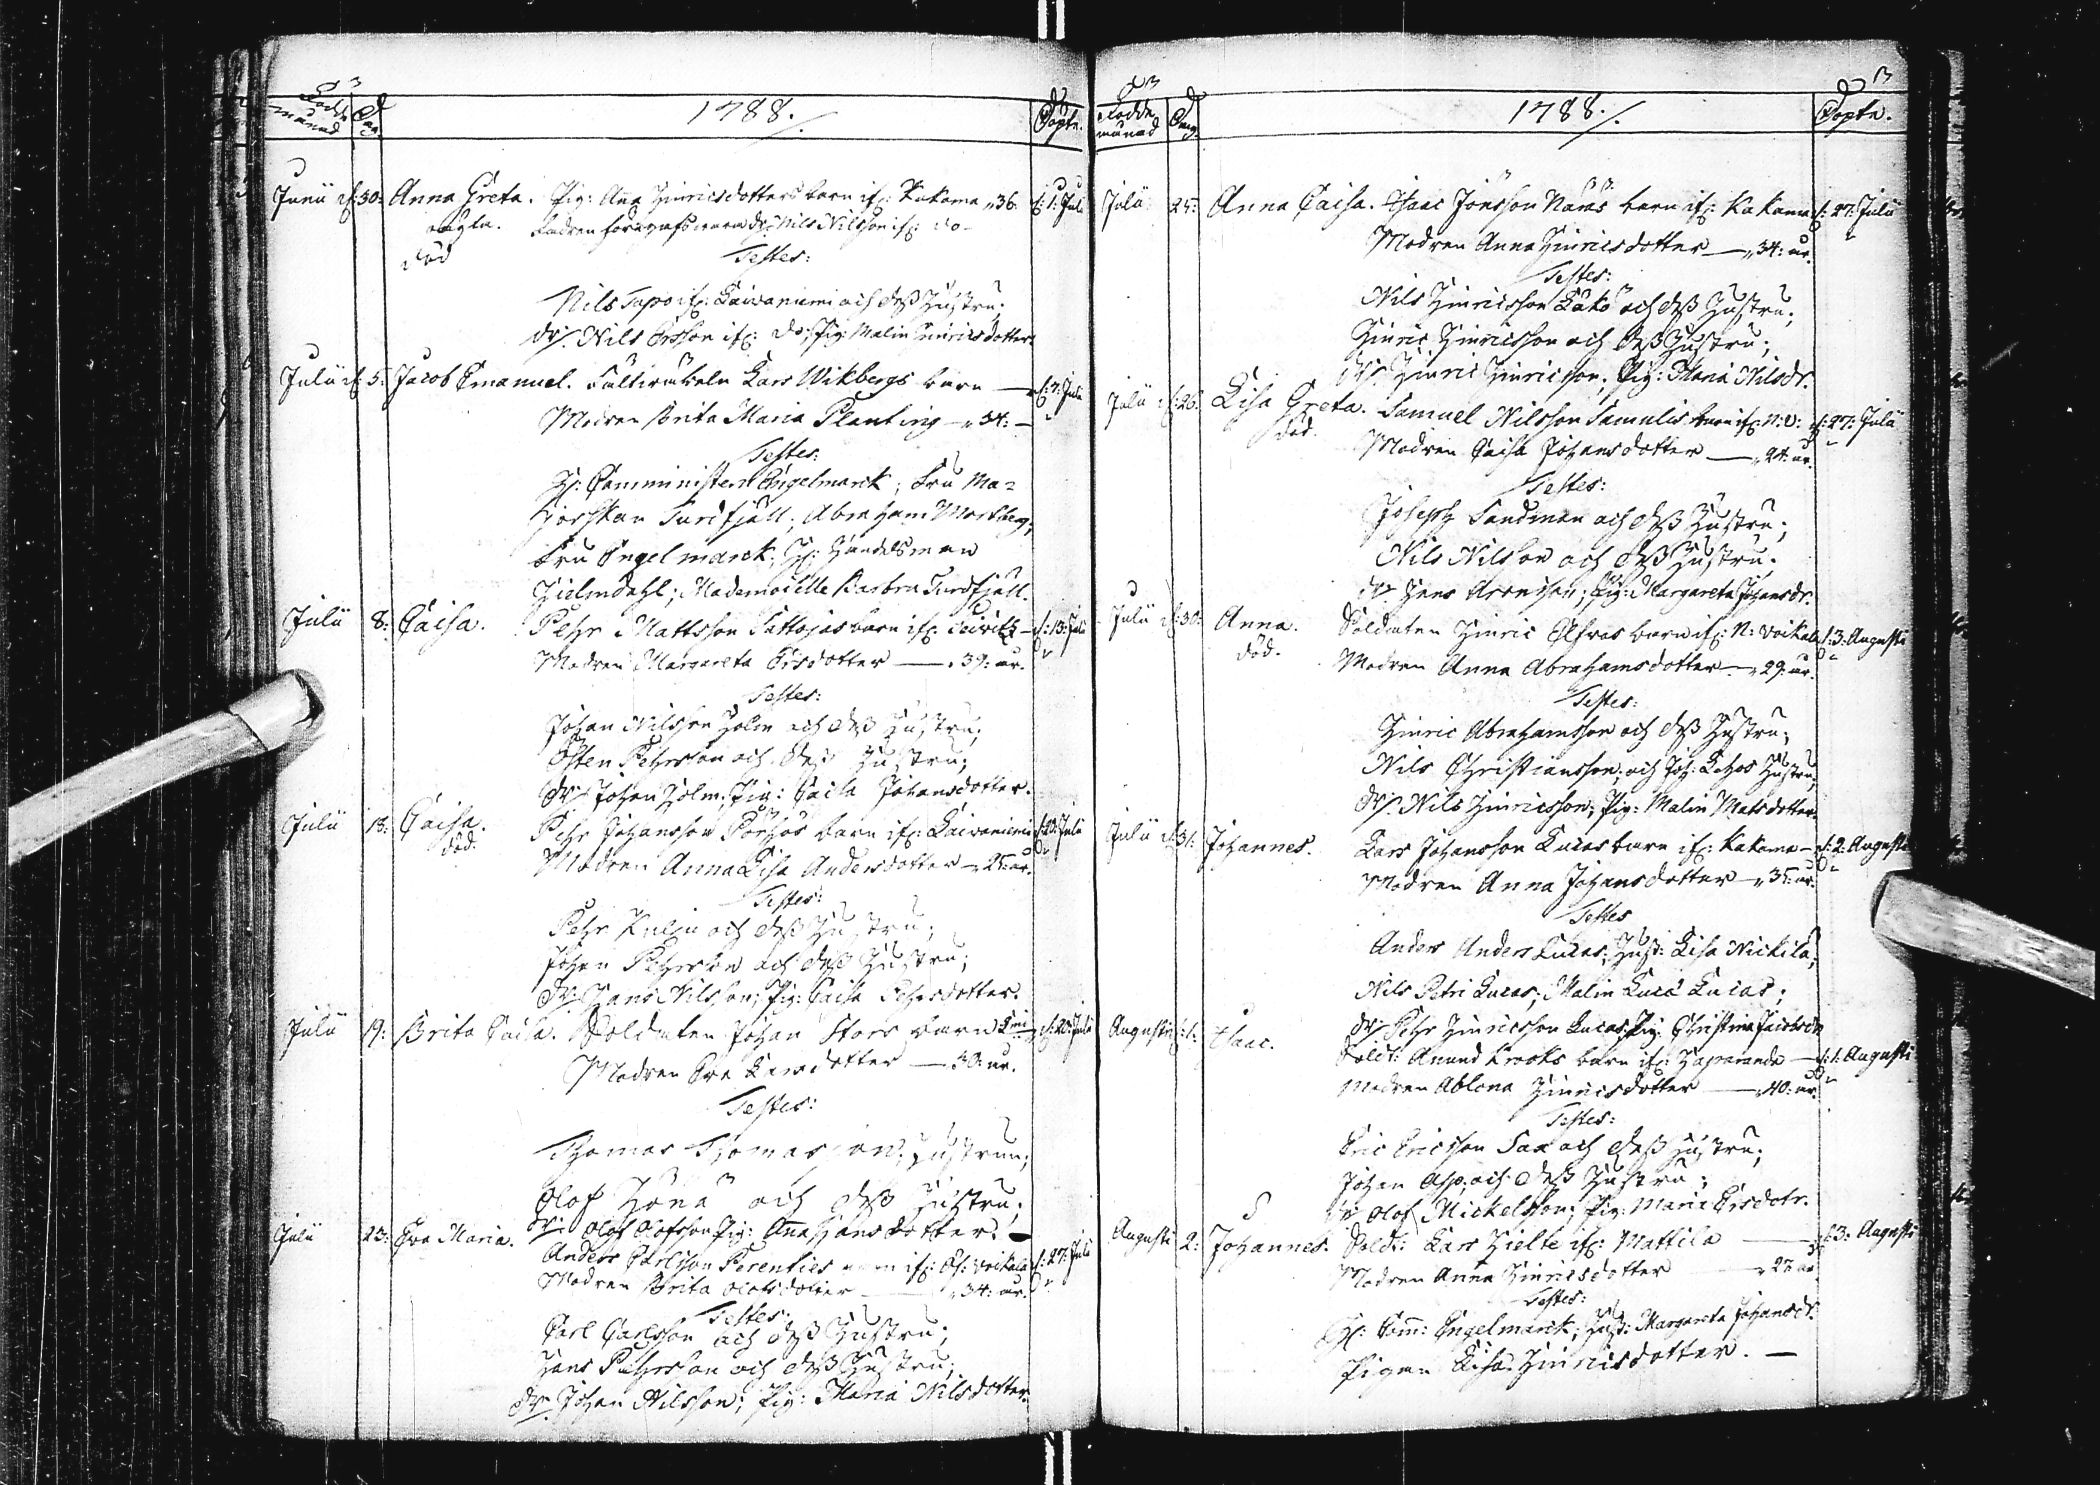 Födde månad Dag. 1788. Döpte.
Junii d: 30: Anna Greta. Pig: Anna Hinricsdotters barn if: Kakama „ 36. d: 1: Julii
oägta. fadren föregifs vara dr: Nils Nilsson if: do
död
Testes:
Nils Tapo if: Laivaniemi och dess Hustru;
dr: Nils Ersson if: do; Pig: Malin Hinricsdotter.
Julii d: 5: Jacob Emanuel. Lars Wikbergs barn — d: 7: Julii
Modren Brita Maria Planting — „ 34: —
Testes:
H: Comministern Engelmarck; Fru Ma-
jorskan Turdfjäll; Abraham Mortberg;
Fru Engelmarck; H: Handelsman
Hielmdahl; Mademoiselle Barbra Turdfjäll.
Julii 8: Caisa. Pehr Mattsson barn if: — d: 13: Julii
Modren Margareta Ersdotter — „ 39: år.
Testes:
Johan Nilsson Holm och dess Hustru;
Östen Pehrsson och dess Hustru;
dr: Johan Holm; Pig: Caisa Johansdotter.
Julii 18: Caisa. Pehr Johansson barn if: Laivaniemi d: 20: Julii
död.
Modren Anna Lisa Andersdotter — „ 25: år.
Testes:
Pehr Kulju och dess Hustru;
Johan Pehrsson och dess Hustru;
dr: Hans Nilsson; Pig: Caisa Pehrsdotter.
Julii 19: Brita Caisa. Soldaten Johan Stors barn d: 20: Julii
Modren Eva Larsdotter — 30: år.
Testes:
Thomas Thomasson; Hustrun;
Olof och dess Hustru;
dr: Olof Olofsson Pig: Anna Hansdotter. —
Julii 23: Eva Maria. Anders Carlsson barn if: Öf: Voikala d: 27: Julii
Modren Brita Olofsdotter — „ 34: år.
Testes:
Carl Carlsson och dess Hustru;
Hans Pehrsson och dess Hustru;
dr: Johan Nilsson; Pig: Maria Nilsdotter.
Födde månad Dag. 1788. Döpte.
Julii 25: Anna Caisa. Isaac Jönsson Nääs barn if: Kakama d: 27: Julii
Modren Anna Hinricsdotter — „ 34: år.
Testes:
Nils Hinricsson Läkö och dess Hustru;
Hinric Hinricsson och dess Hustru;
dr: Hinric Hinricsson; Pig: Maria Nilsdr.
Julii d: 26: Lisa Greta. Samuel Nilsson barn if: N: V: d: 27: Julii
död.
Modren Caisa Johansdotter — „ 24: år.
Testes:
Joseph Sandman och dess Hustru;
Nils Nilsson och dess Hustru;
dr: Hans Aronsson; Pig: Margareta Johansdr.
Julii d: 30: Anna. Soldaten Hinric Elfvas barn if: N: Voikala d: 3: Augusti
död.
Modren Anna Abrahamsdotter — „ 29: år.
Testes:
Hinric Abrahamsson och dess Hustru;
Nils Christiansson; och Joh: Hustru;
dr: Nils Hinricsson; Pig: Malin Matsdotter.
Julii d: 31: Johannes. Lars Johansson Lucas barn if: Kakama — d: 2: Augusti
Modren Anna Johansdotter — „ 35: år.
Testes
Anders Anders Lucas; Hust: Lisa Nickila;
Nils Petri Lucas; Malin Lars Lucas;
dr: Pehr Hinricsson Lucas; Pig: Christina Jacobsdr
Augusti d: 1: Isaac. Sold: Anund Krooks barn if: Haparanda — d: 1: Augusti
Modren Ablona Hinricsdotter — „ 40: år.
Testes:
Eric Ericsson Sax och dess Hustru;
Johan Asp, och dess Hustru;
dr: Olof Mickelsson; Pig: Maria Ersdotr.
Augusti 2: Johannes. Sold: Lars Hielte if: Mattila — d: 3: Augusti
Modren Anna Hinricsdotter — „ 27 år.
Testes:
H: Com: Engelmarck; Hust: Margareta Johansdr:
Pigan Lisa Hinricsdotter. —